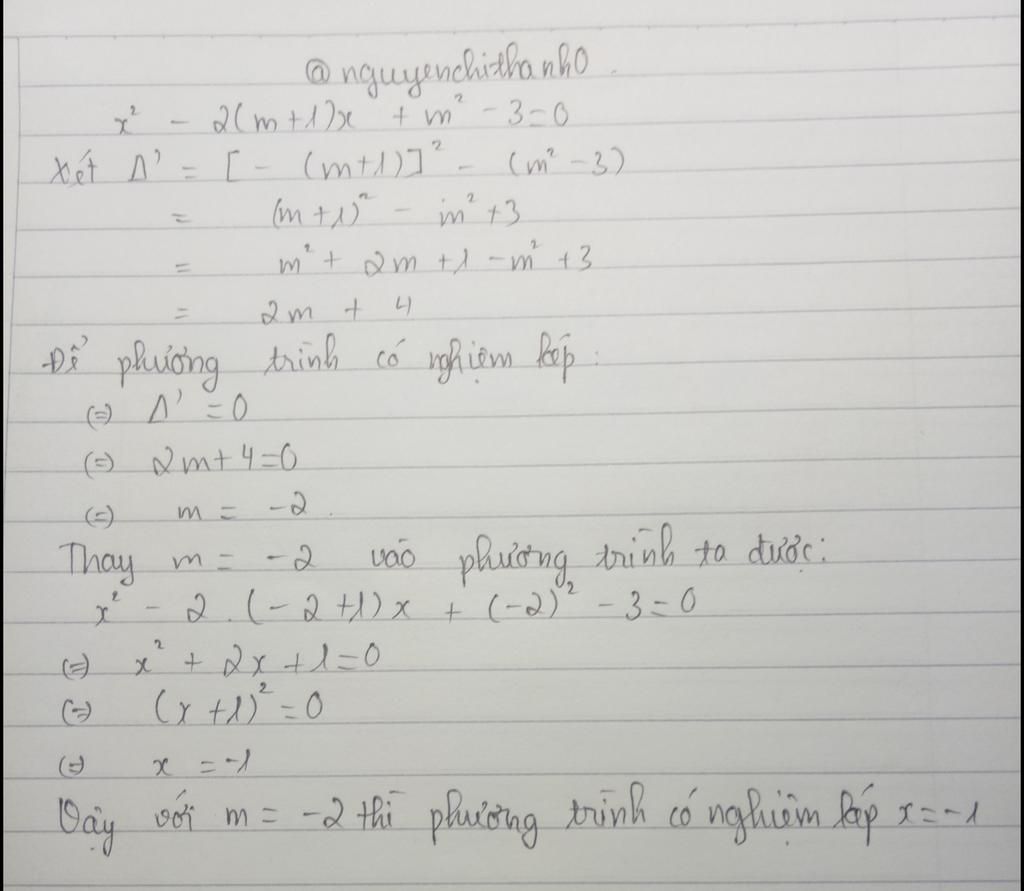 @nguyenchithanh0.
x² - 2(m+1)x + m² - 3 = 0
Xét Δ' = [- (m+1)]² - (m² - 3)
= (m+1)² - m² + 3
= m² + 2m + 1 - m² + 3
= 2m + 4
Để phương trình có nghiệm kép:
(=) Δ' = 0
(=) 2m + 4 = 0
(=) m = -2.
Thay m = -2 vào phương trình ta được:
x² - 2.(-2+1)x + (-2)² - 3 = 0
(=) x² + 2x + 1 = 0
(=) (x+1)² = 0
(=) x = -1
Vậy với m = -2 thì phương trình có nghiệm kép x = -1